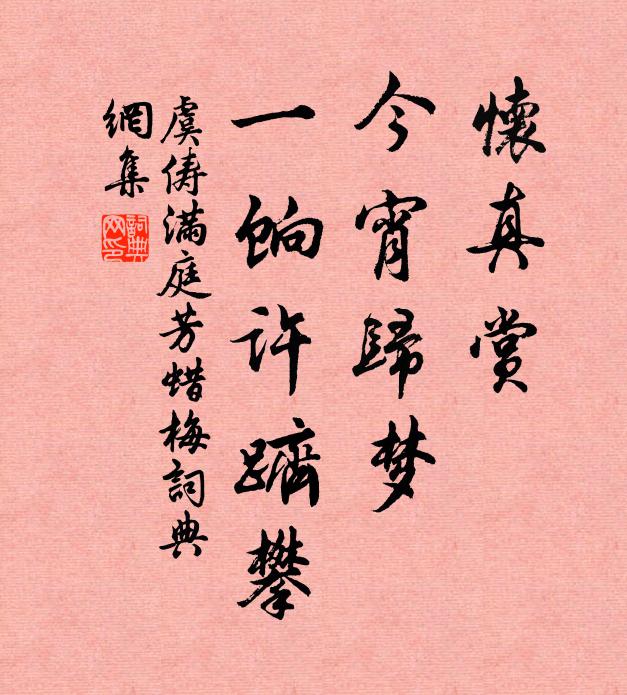 懷真賞
今宵歸梦
一餉許躋攀
虞俦满庭芳蜡梅詞典
網集
詞典网印